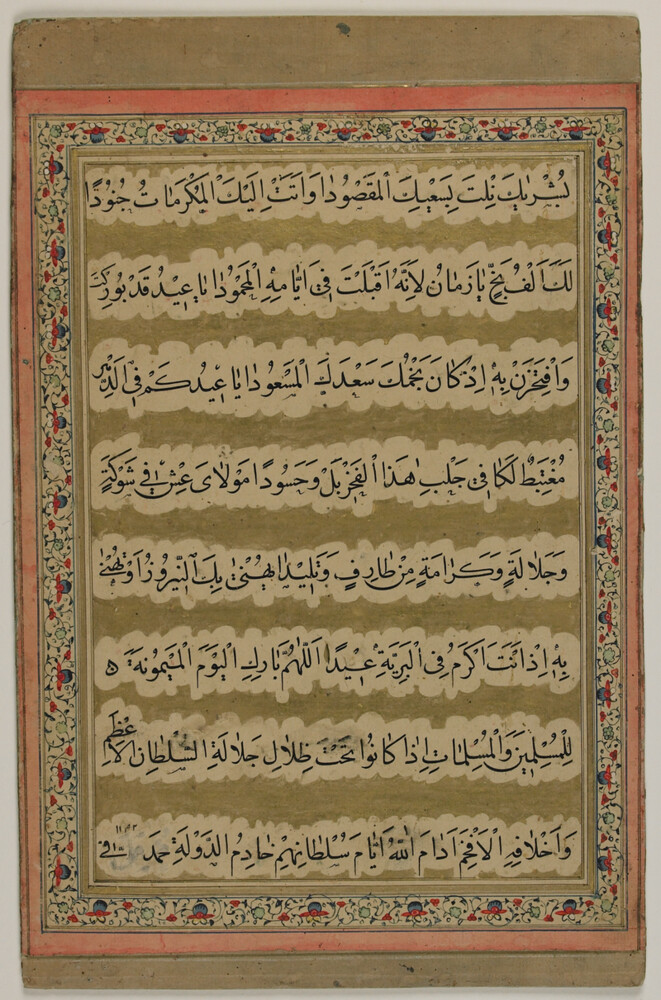 بُشْرِيكَ نِلْتَ بِسَعْيِكَ الْمَقْصُودَا وَاَتَتْ اِلَيْكَ الْمَكْرَمَاتُ جُنُودًا
لَكَ اَلْفُ بَخٍّ يَا زَمَانُ لِاَنَّهُ اَقْبَلْتَ فِي اَيَّامِهِ الْمَحْمُودَا يَا عِيْدُ قَدْ بُورِكْتَ
وَافْتَخِرَنْ بِهِ اِذْ كَانَ نَجْمُكَ سَعْدَكَ الْمَسْعُودَا يَا عِيدُ كَمْ فِي الدَّهْرِ
مُغْتَبِطٌ لَكَا فِي جَلْبِ هٰذَا الْفَخْرِ بَلْ وَحَسُودًا مَوْلَايَ عِشْ فِي شَوْكَةٍ
وَجَلَالَةٍ وَكَرَامَةٍ مِنْ طَارِفٍ وَتَلِيدًا يُهْنٰى بِكَ النَّيْرُوزُ اَوْ تُهْنٰى
بِهِ اِذْ اَنْتَ اَكْرَمُ فِي الْبَرِيَّةِ عِيْدًا اَللّٰهُمَّ بَارِكِ الْيَوْمَ الْمَيْمُونَةَ ۵
لِلْمُسْلِمِينَ وَالْمُسْلِمَاتِ اِذَا كَانُوا تَحْتَ ظِلَالِ جَلَالَةِ السُّلْطَانِ الْاَعْظَمِ
وَاَخْلَافِهِ الْاَفْخَمِ اَدَامَ اللّٰهُ اَيَّامَ سُلْطَانِهِمْ خَادِمُ الدَّوْلَةِ حمد فی